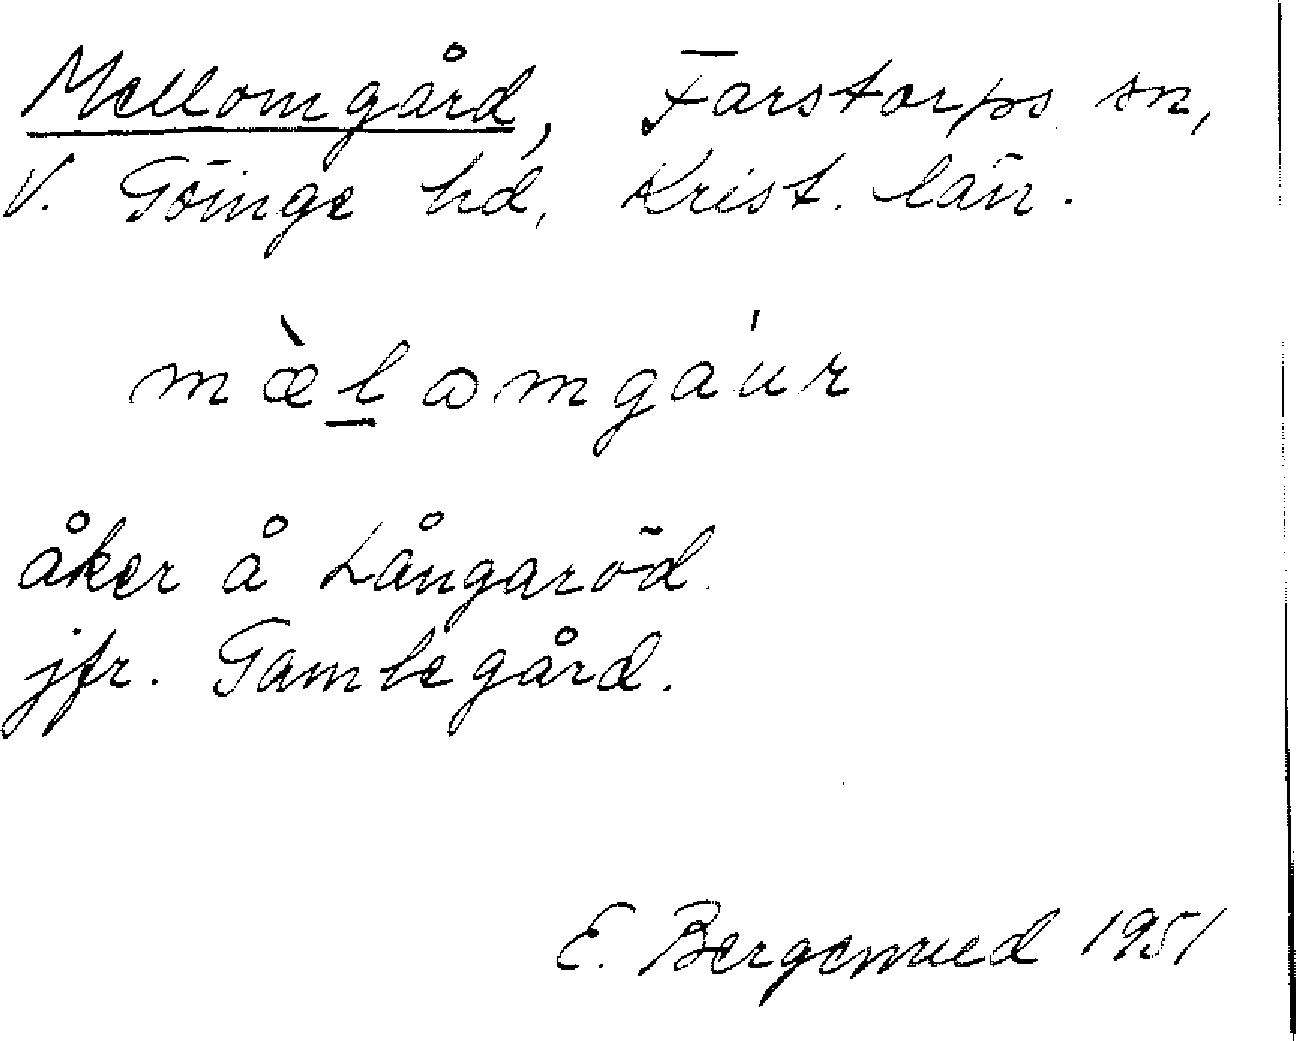 Mellomgård, Farstorps sn,
V. Göinge hd, Krist. län.
mæ̀l̲ɷmgáur
åker å Långaröd.
jfr. Gamlegård.
E. Bergenrud 1951